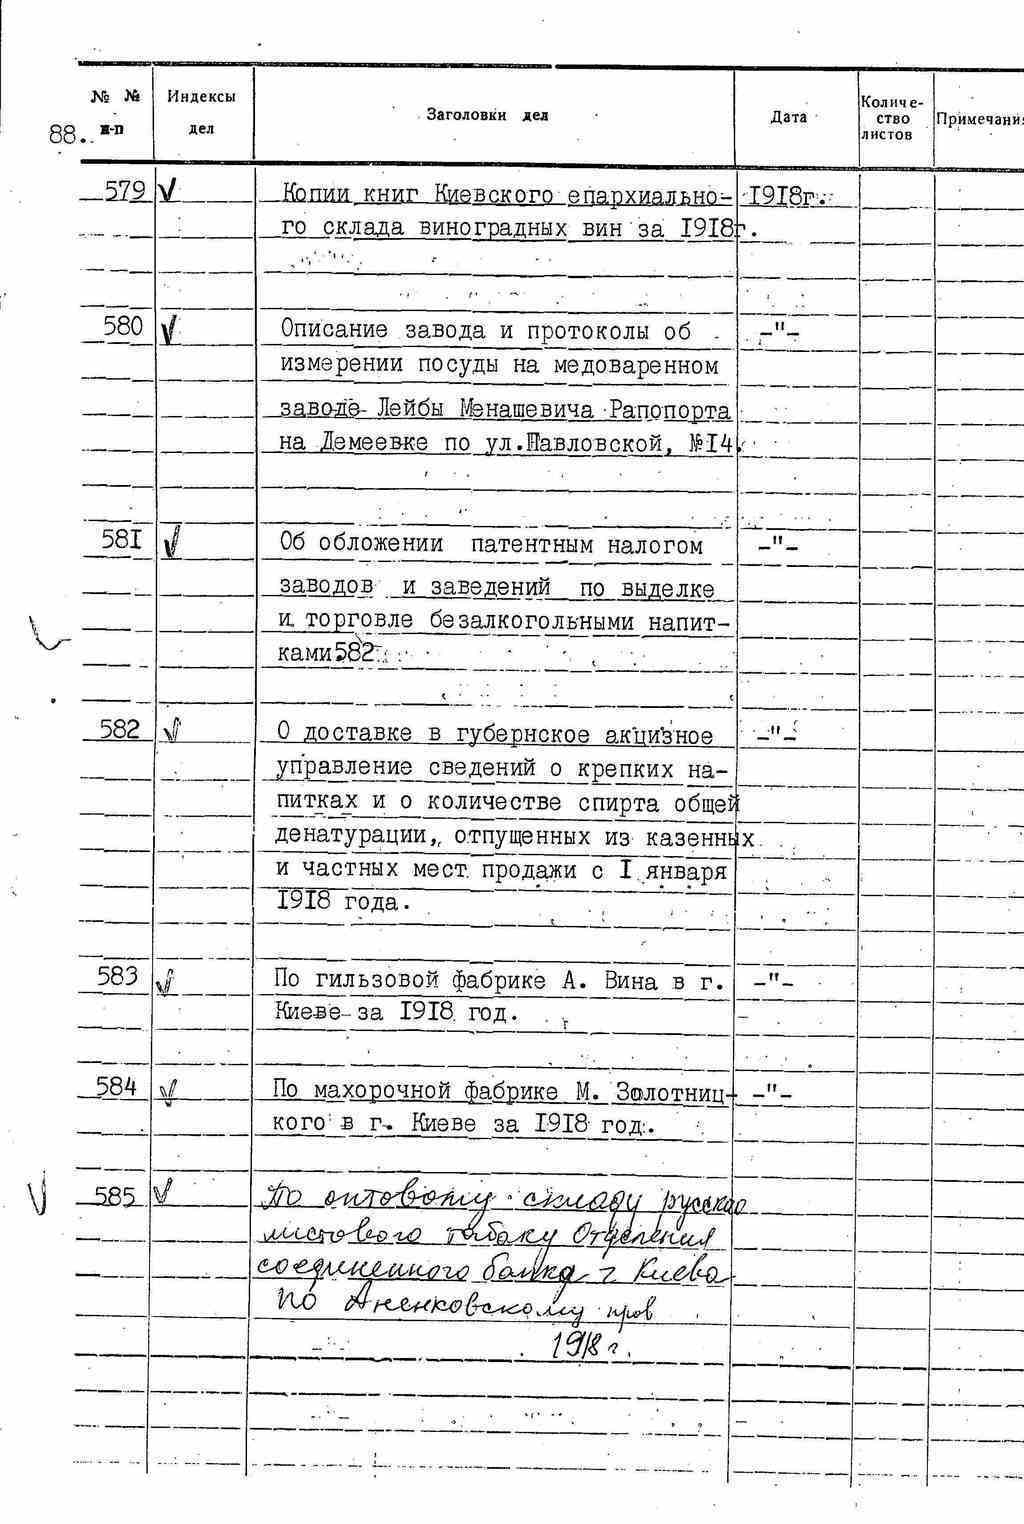 № № п-п
Индексы дел
Заголовки дел
Дата
Количе-
ство
листов
Примечани
88.
579 V Копии книг Киевского епархиально- 1918г.
го склада виноградных вин за 1918г.
580 V Описание завода и протоколы об -"-
измерении посуды на медоваренном
заводе Лейбы Менашевича Рапопорта
на Демеевке по ул.Павловской, №14.
581 V Об обложении патентным налогом -"-
заводов и заведений по выделке
и торговле безалкогольными напит-
ками582.
582 V О доставке в губернское акцизное -"-
управление сведений о крепких на-
питках и о количестве спирта общей
денатурации, отпущенных из казенных
и частных мест продажи с 1 января
1918 года.
583 V По гильзовой фабрике А. Вина в г. -"-
Киеве за 1918 год.
584 V По махорочной фабрике М. Золотниц- -"-
кого в г. Киеве за 1918 год.
585 V По оптовому складу русского
листового табаку Отделения
соединенного банка г Киева
по Аненковскому пров
1918 г.